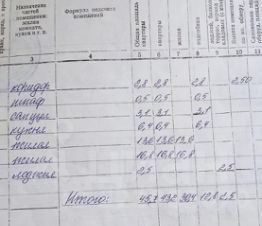 Назначение
частей
помещения:
жилая
комната,
кухня и т. п.
Формула подсчета
помещения
Общая площадь
квартиры
квартиры
жилая
3 4 5 6 7 8 9 10 11
коридор 2,8 2,8 2,8 2,50
шкаф 0,5 0,5 0,5
санузел 3,1 3,1 3,1
кухня 6,4 6,4 6,4
жилая 13,6 13,6 13,6
жилая 16,8 16,8 16,8
лоджия 2,5 2,5
Итого: 45,7 43,2 30,4 12,8 2,5